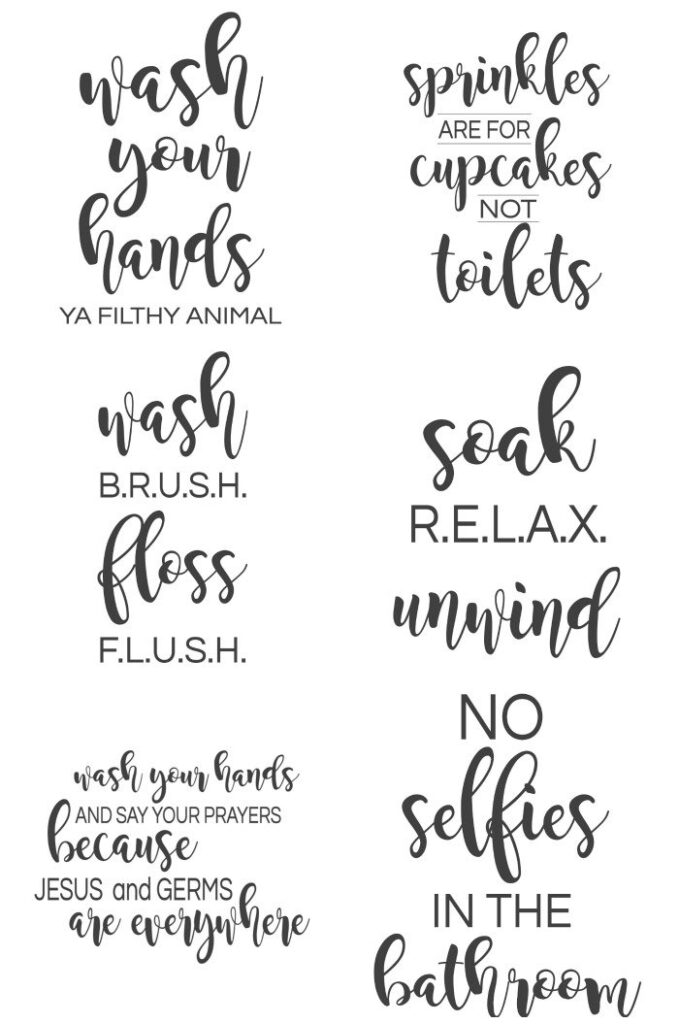 wash
your
hands
YA FILTHY ANIMAL
sprinkles
ARE FOR
cupcakes
NOT
toilets
wash
B.R.U.S.H.
floss
F.L.U.S.H.
soak
R.E.L.A.X.
unwind
wash your hands
AND SAY YOUR PRAYERS
because
JESUS and GERMS
are everywhere
NO
selfies
IN THE
bathroom